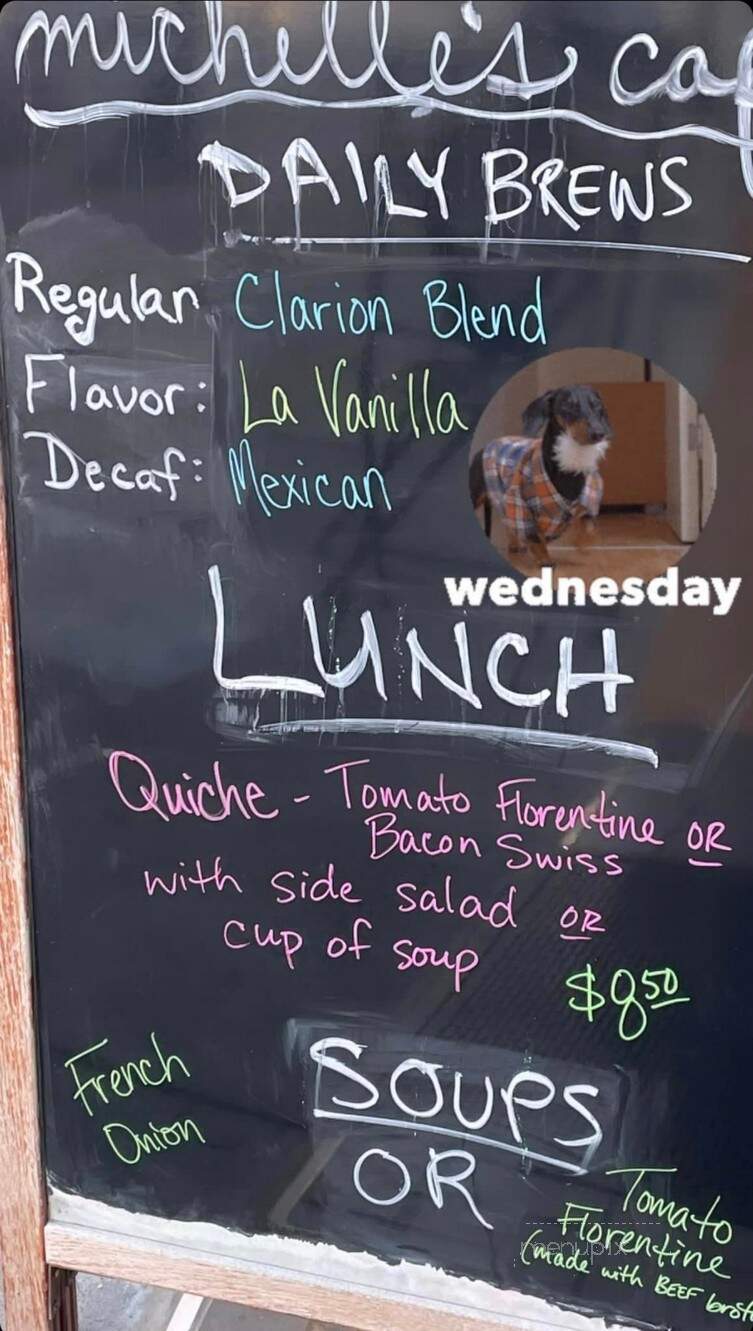 michelle's caf
DAILY BREWS
Regular Clarion Blend
Flavor: La Vanilla
Decaf: Mexican
wednesday
LUNCH
Quiche - Tomato Florentine OR
Bacon Swiss
with side salad OR
cup of soup
$8.50
SOUPS
French
Onion
OR
Tomato
Florentine
menupix
(made with BEEF brot